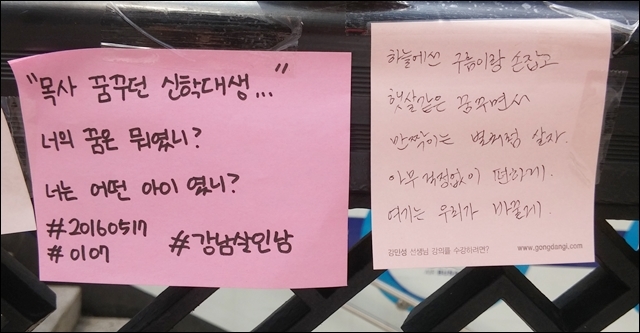 "목사 꿈꾸던 신학대생..."
너의 꿈은 뭐였니?
너는 어떤 아이 였니?
#20160517
#0107 #강남살인남
하늘에선 구름이랑 손잡고
햇살같은 꿈꾸면서
반짝이는 별처럼 살자.
아무 걱정없이 편하게.
여기는 우리가 바꿀게.
강민성 선생님 강의를 수강하려면? www.gongdangi.com